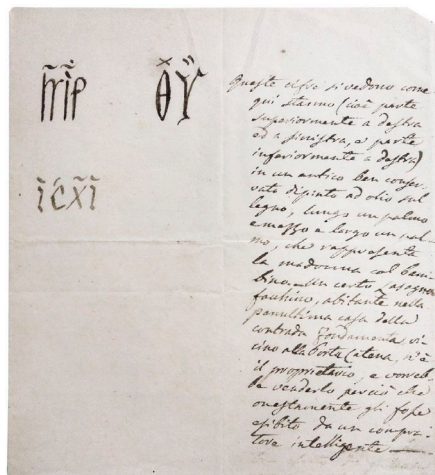 Μ̃Ρ Θ̃Υ
ῙC̄ΧῙ
Queste cifre si vedono come
qui stanno (cioè parte
superiormente a destra
ed a sinistra, e parte
inferiormente a destra)
in un antico ben conser-
vato dipinto ad olio sul
legno, lungo un palmo
e mezzo e largo un pal-
mo, che rappresenta
la madonna col bam-
bino. Un certo
facchino, abitante nella
penultima casa della
contrada Fondamenta vi-
cino alla Porta Catena, n'è
il proprietario, e vorreb-
be venderlo perciò che
onestamente gli fosse
esibito da un compra-
tore intelligente